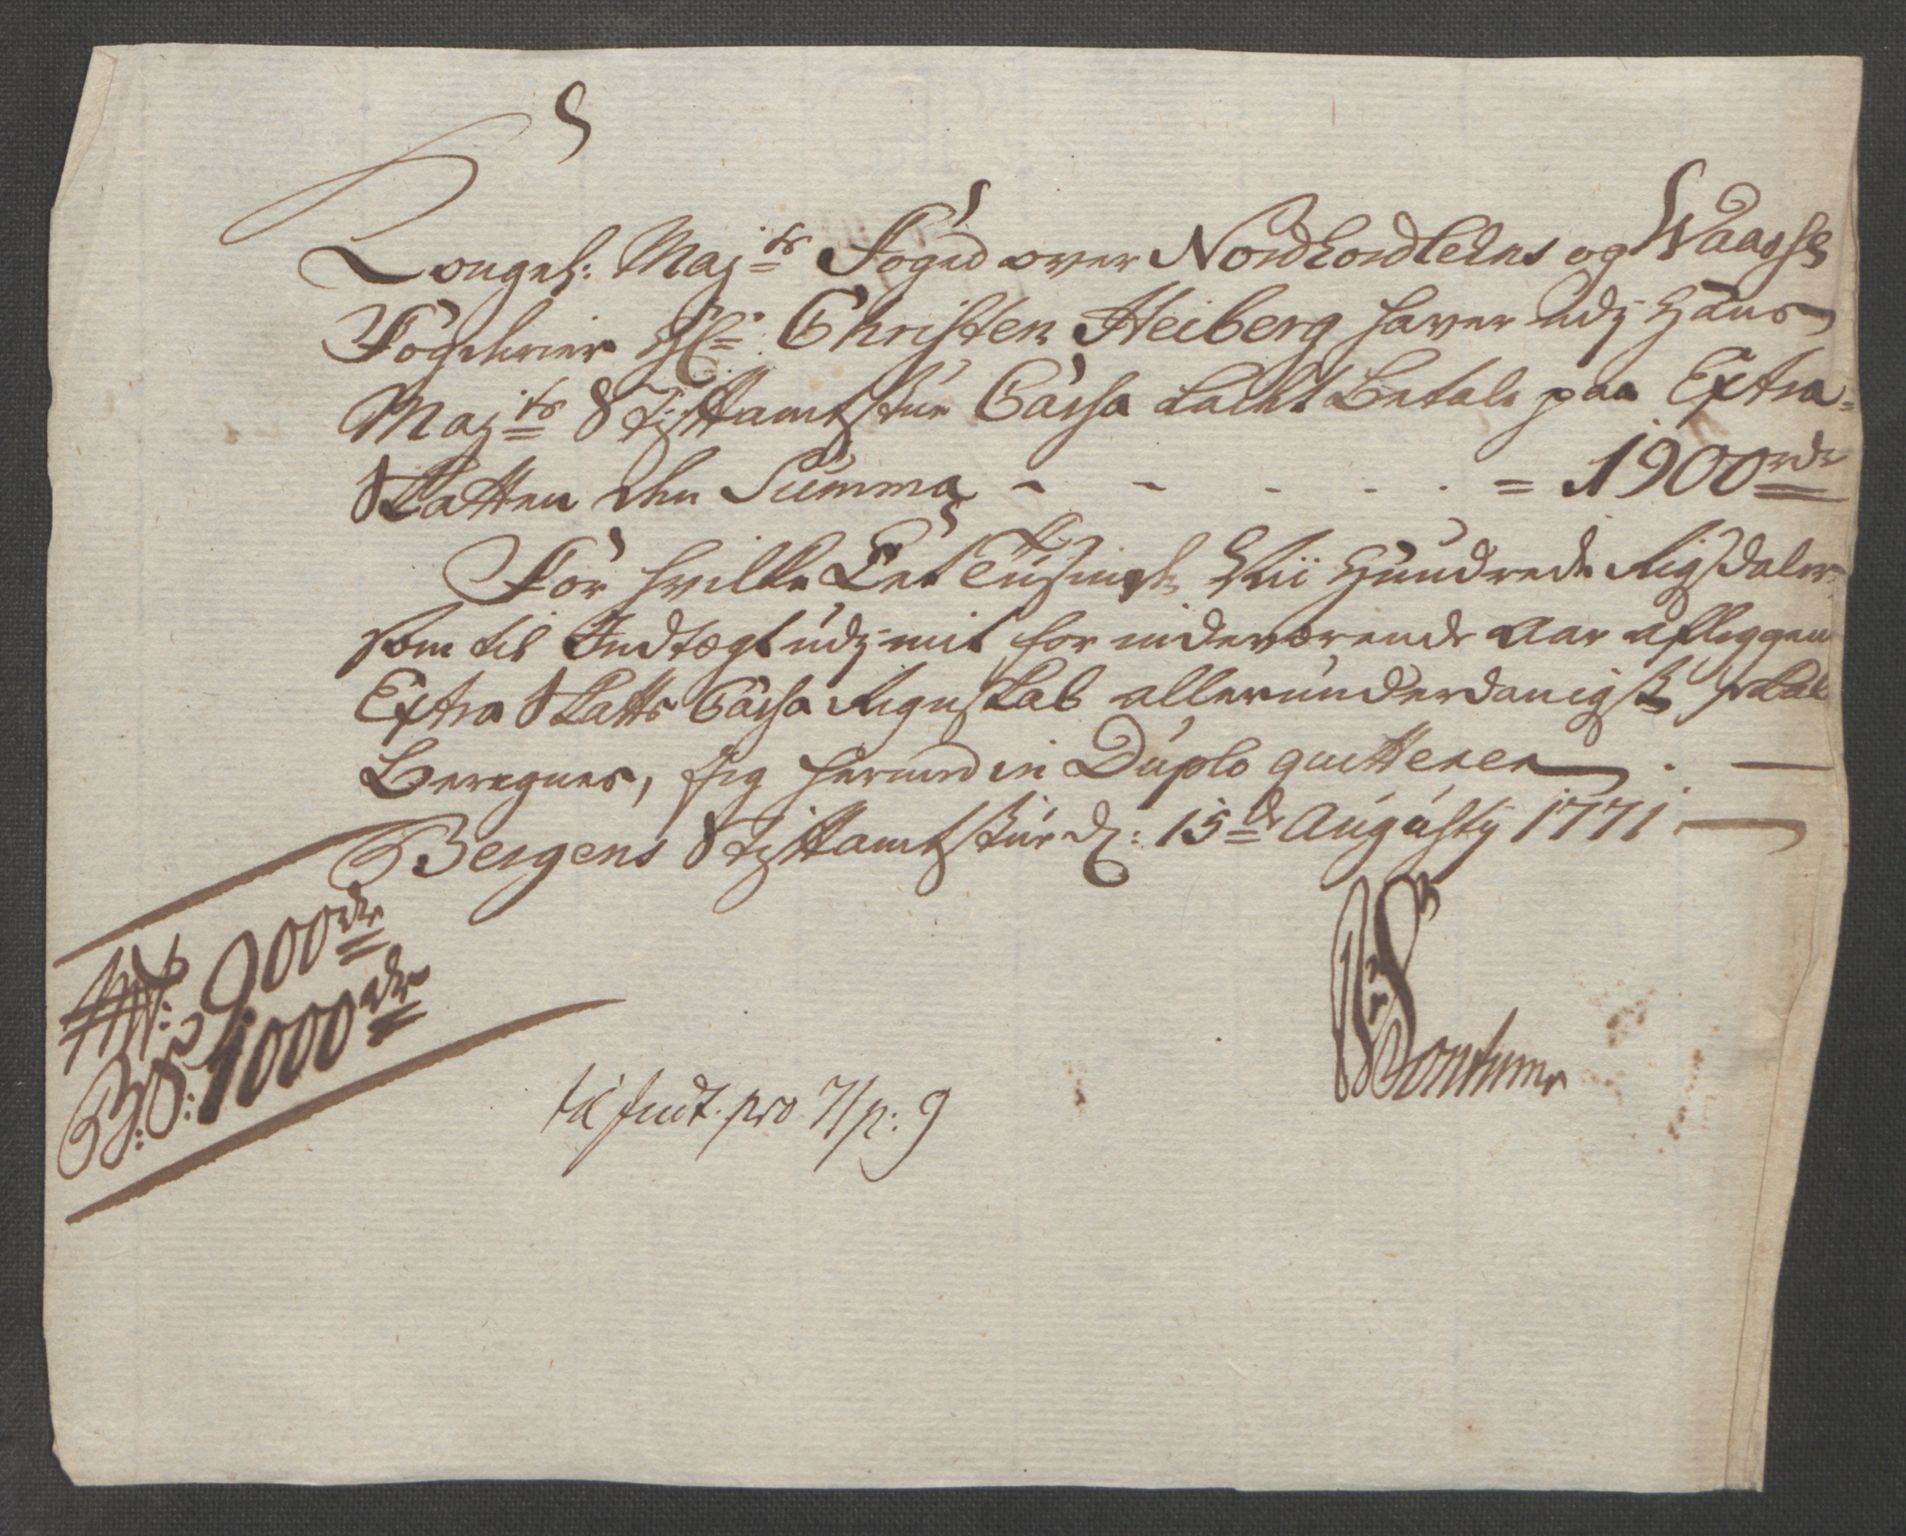 Kongel: Maj:ts Foged over Nordhordlehns og Waasse
Fogderier Hr: Christen Heiberg haver udj Hans
Maj:ts Stiftamtstue Cassa ladet betale paa Extra-
Skatten den Summa - - - - - - = 1900rdr
For hvilke Eet Tusinde Nii Hundrede Rigsdaler
som til Indtægt udj mit for indeværende Aar aflæggende
Extra Skatts Cassa Regnskab allerunderdanigst skal
beregnes, sig herved in Duplo qvitterer
Bergens Stiftamtstue d: 15de Augusty 1771
900rdr
B:S: 1000rdr
til Indt. pro 71 p: 9